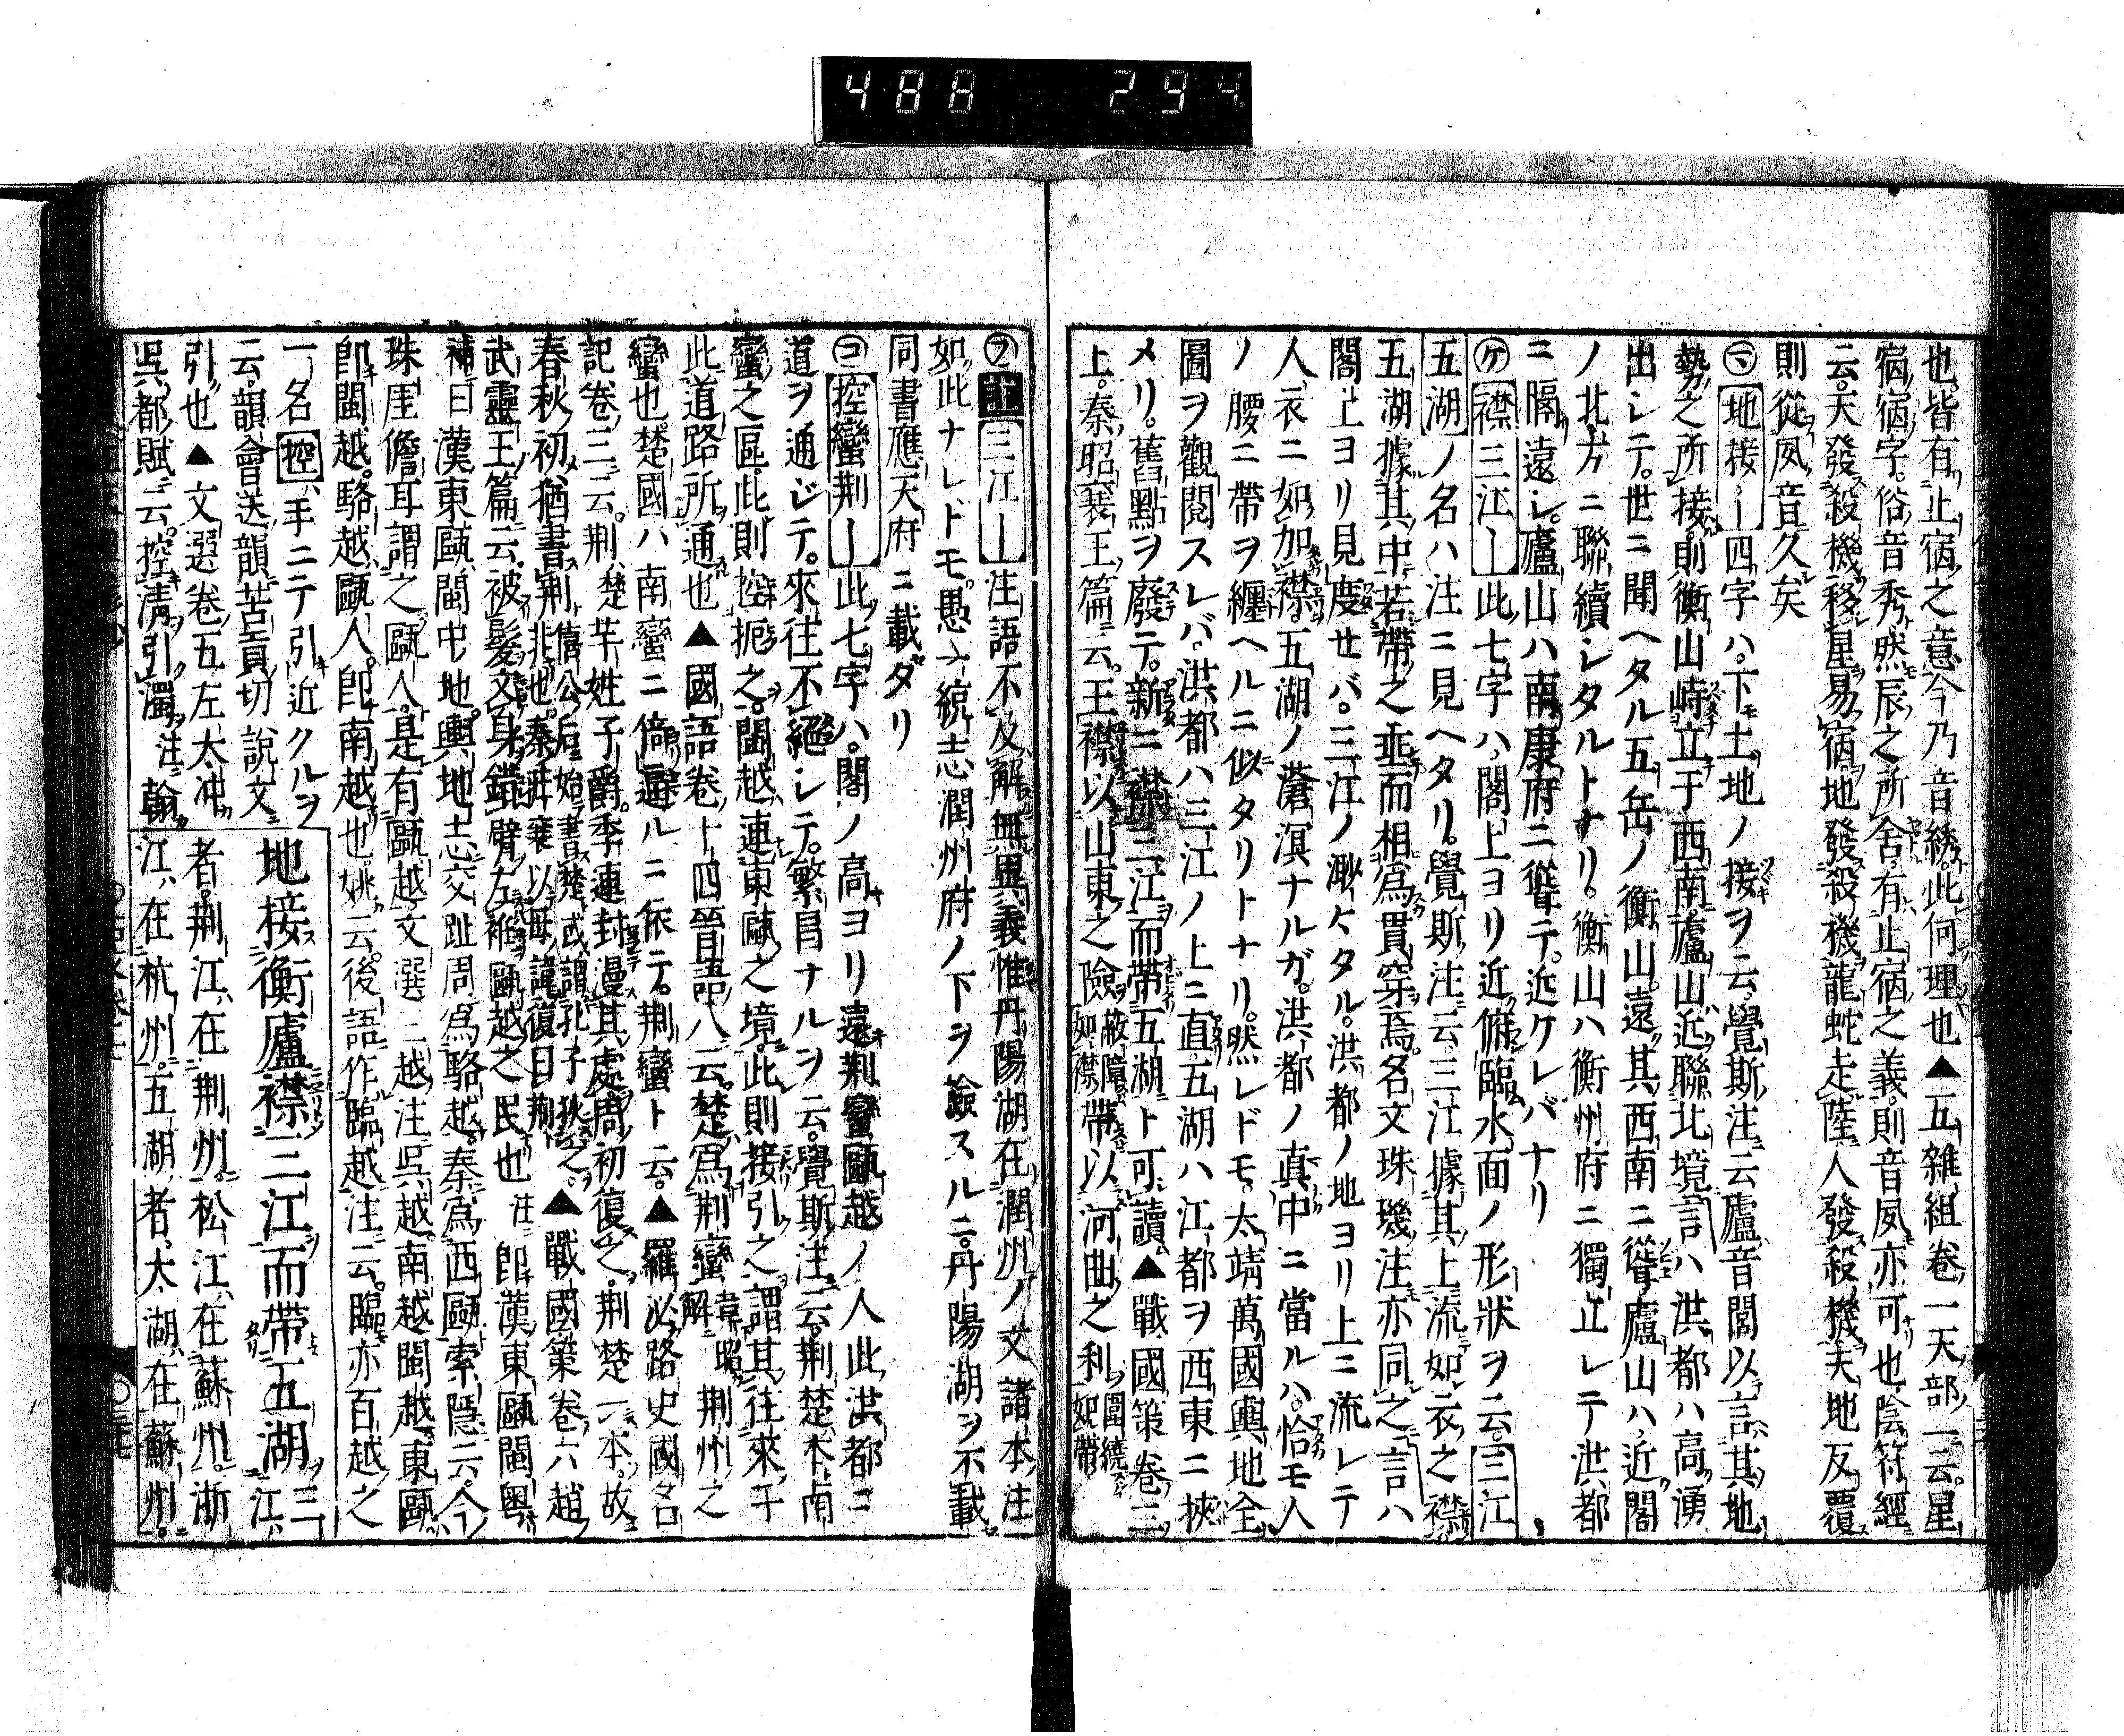 488 294
也皆有止宿之意今乃音綉此何理也▲五雜組卷一天部一云星
宿宿字俗音秀然辰之所舍有止宿之義則音夙亦可也陰符經
云天發殺機移星易宿地發殺機龍蛇走陸人發殺機天地反覆
則從夙音久矣
㋮地接〡四字ハ下土地ノ接ヲ云覺斯注云廬音閭以言其地
勢之所接則衡山峙立于西南廬山近聯北境言ハ洪都ハ高湧
出シテ世ニ聞ヘタル五岳ノ衡山遠其西南ニ聳廬山ハ近閣
ノ北方ニ聯續シタルトナリ衡山ハ衡州府ニ獨立レテ洪都
ニ隔遠シ廬山ハ南康府ニ聳テ近ケレバナリ
㋘襟三江〡此七字ハ閣上ヨリ近俯臨水面ノ形狀ヲ云三江
五湖ノ名ハ注ニ見ヘタリ覺斯注云三江據其上流如衣之襟
五湖據其中若帶之垂而相爲貫穿焉名文珠璣注亦同之言ハ
閣上ヨリ見度セバ三江ノ渺々タル洪都ノ地ヨリ上ニ流レテ
人衣ニ如加襟五湖ノ蒼溟ナルガ洪都ノ真中ニ當ルハ恰モ人
ノ腰ニ帶ヲ纏ヘルニ似タリトナリ然レドモ太靖萬國輿地全
圖ヲ觀閲スレバ洪都ハ三江ノ上ニ直五湖ハ江都ヲ西東ニ挾
メリ舊點ヲ廢テ新ニ襟三江而帶五湖ト可讀▲戰國策卷三
上秦昭襄王篇云王襟以山東之險蔽障如襟帶以河曲之利圍繞如帶
㋫註三江〡注語不及解無異義惟丹陽湖在潤州ノ文諸本注
如此ナレドモ愚一統志潤州府ノ下ヲ撿スルニ丹陽湖ヲ不載
同書應天府ニ載ダリ
㋙控蠻荆〡此七字ハ閣ノ高ヨリ遠荆蠻甌越ノ人此洪都ニ
道ヲ通ジテ來往不絕シテ繁昌ナルヲ云覺斯注云荆楚本南
蠻之區此則控扼之閩越連東甌之境此則接引之謂其往來于
此道路所通也▲國語卷十四晉語八云楚爲荆蠻韋昭解荆州之
蠻也楚國ハ南蠻ニ偪ルニ依テ荆蠻ト云▲羅泌路史國名
記卷三云荆楚芊姓子爵季連封漫其處周初復之荆楚一本故
春秋初猶書荆僖公后始書楚或謂孔子狄之非也秦莊襄以母諱復曰荆▲戰國策卷六趙
武靈王篇云被髮文身錯臂左袵甌越之民也注卽漢東甌閩粤
補曰漢東甌閩中地輿地志交趾周爲駱越秦爲西甌索隱云今
珠厓儋耳謂之甌人是有甌越文選二越注呉越南越閩越東甌
卽閩越駱越甌人卽南越也姚云後語作臨越注云臨亦百越之
一名控手ニテ引近クルヲ
云韻會送韻苦貢切說文
引也▲文選卷五左太冲
呉都賦云控淸引濁注翰
地接衡廬襟三江而帶五湖三江
者荆江在荆州松江在蘇州浙
江在杭州五湖者太湖在蘇州